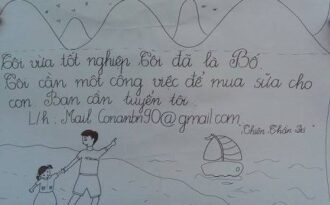 Tôi vừa tốt nghiệp Tôi đã là Bố.
Tôi cần một công việc để mua sữa cho
con. Bạn cần tuyển tôi
L/h : Mail Conanbn90@gmail.com